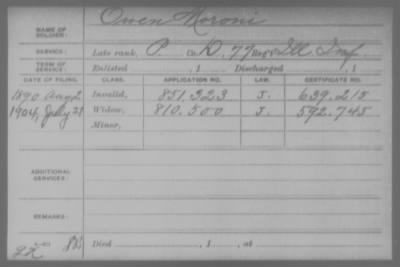 NAME OF SOLDIER: Owen Moroni
SERVICE: Late rank, P. Co. D, 77 Reg't Ill Inf
TERM OF SERVICE: Enlisted , 1 Discharged , 1
DATE OF FILING. CLASS. APPLICATION NO. LAW. CERTIFICATE NO.
1890 Aug 2 Invalid, 851.323 J. 639.215
1904, July 21 Widow, 810.500 J. 592.745
Minor,
ADDITIONAL SERVICES:
REMARKS:
Died , 1 , at